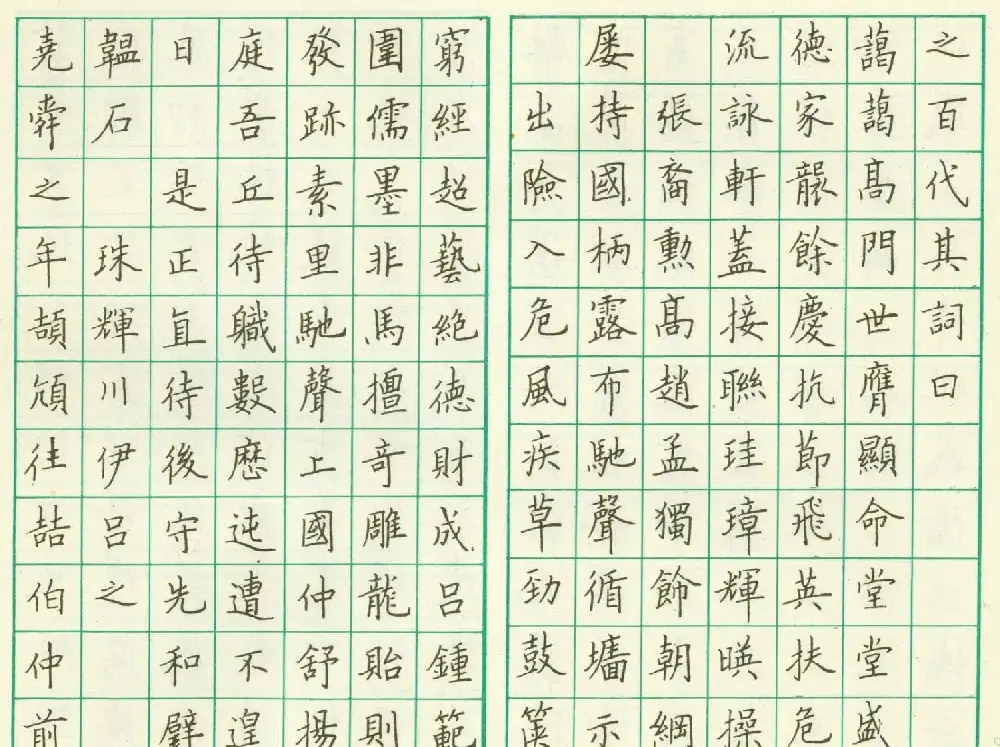 之百代其詞曰
藹藹髙門世膺顯命堂堂盛
德家襲餘慶抗節飛英扶危
流詠軒蓋接聯珪璋輝暎操
張裔勲髙趙孟獨飾朝綱
屡持國柄露布馳聲循墻示
出險入危風疾草勁鼓篋
窮經超藝絶德財成呂鍾範
圍儒墨非馬擅奇雕龍貽則
發跡素里馳聲上國仲舒揚
庭吾丘待職數歴迍邅不遑
日 是正直待後守先和璧
韞石 珠輝川伊呂之
堯舜之年頡頏往喆伯仲前